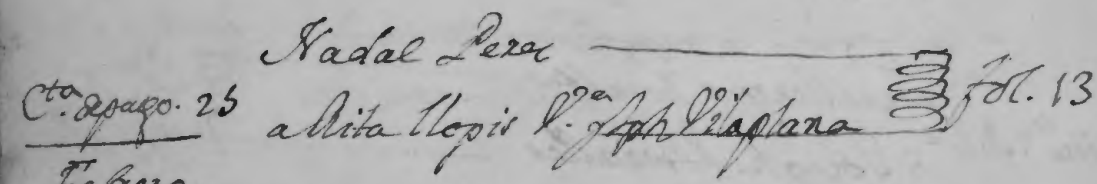 Nadal Perez
C.ta depago. 25 a Rita Llopis V.a Jph Vilaplana fol. 13